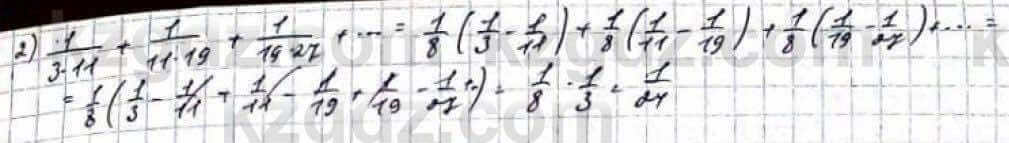 2) 1/(3·11) + 1/(11·19) + 1/(19·27) + ... = 1/8 (1/3 - 1/11) + 1/8 (1/11 - 1/19) + 1/8 (1/19 - 1/27) + ... =
= 1/8 (1/3 - 1/11 + 1/11 - 1/19 + 1/19 - 1/27 ..) = 1/8 · 1/3 = 1/24